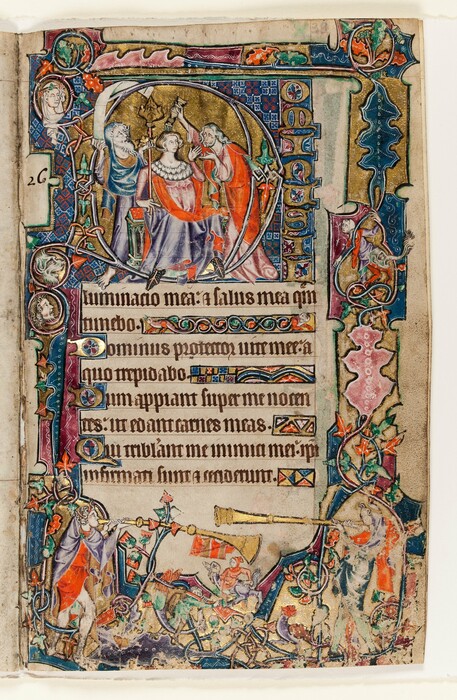 26
D
luminacio mea: ⁊ salus mea quē
timebo.
Dominus protector uite mee: a
quo trepidabo
Dum appiant super me nocen
tes: ut edant carnes meas.
Qui tribl'ant me inimici mei: ipi
infirmati sunt ⁊ ceciderunt.